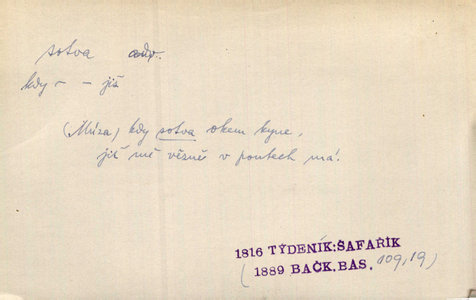 sotva adv.
kdy – – již
(Múza) kdy sotva okem kyne,
již mě vězně v poutech má.
1816 TÝDENÍK:ŠAFAŘÍK
(1889 BAČK.BAS. 109,19)